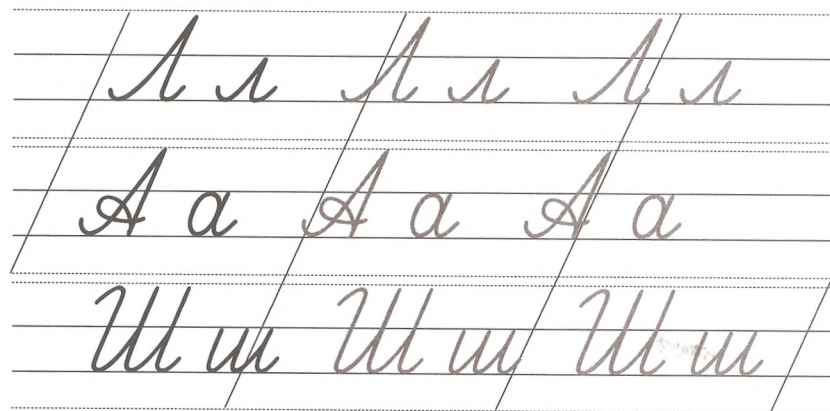 Л л Л л Л л
А а А а А а
Ш ш Ш ш Ш ш